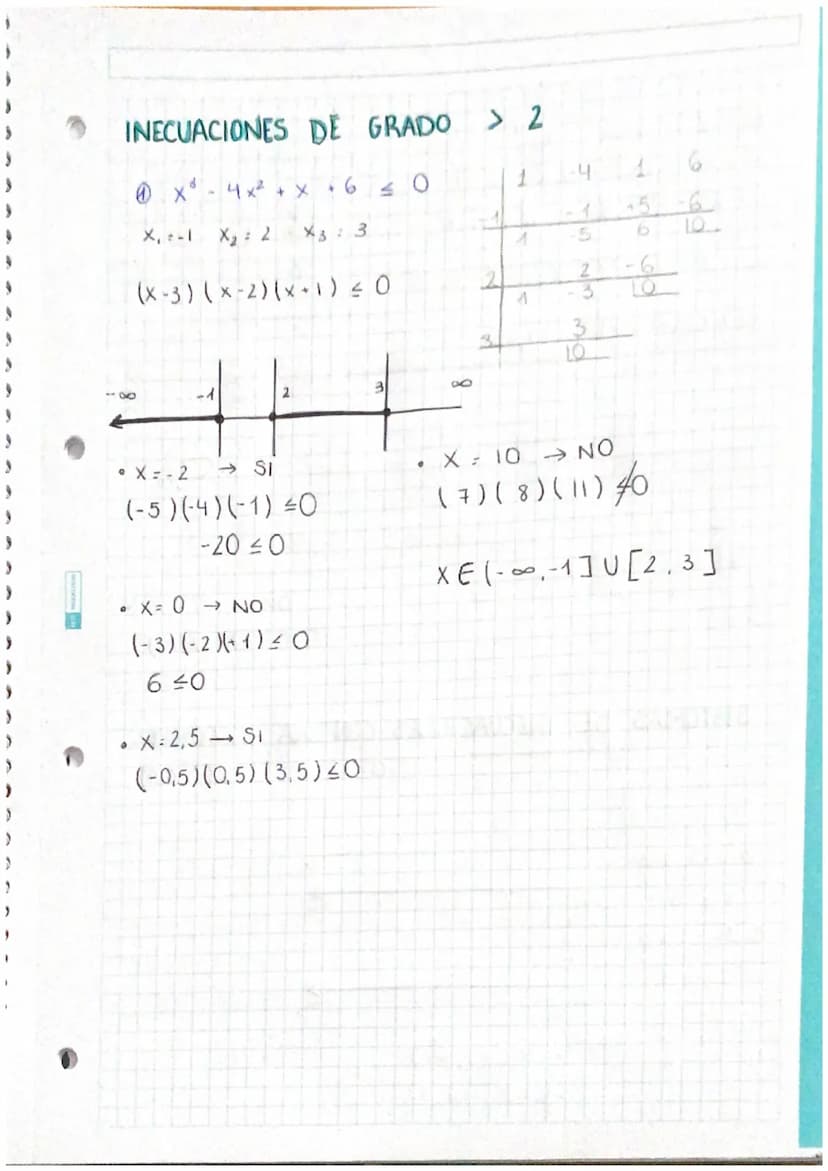 INECUACIONES DE GRADO > 2
① x³ - 4x² + x + 6 ≤ 0
x₁ = -1 x₂ = 2 x₃ = 3
(x-3)(x-2)(x+1) ≤ 0
1 -4 1 6
-1 -1 +5 -6
1 -5 6 |0
2 2 -6
1 -3 |0
3 3
|0
-∞ -1 2 3 ∞
• X = -2 → SI
(-5)(-4)(-1) ≤ 0
-20 ≤ 0
• X = 0 → NO
(-3)(-2)(+1) ≤ 0
6 ≤ 0
• X = 2,5 → SI
(-0,5)(0,5)(3,5) ≤ 0
• X = 10 → NO
(7)(8)(11) ≰ 0
X ∈ (-∞, -1] ∪ [2, 3]